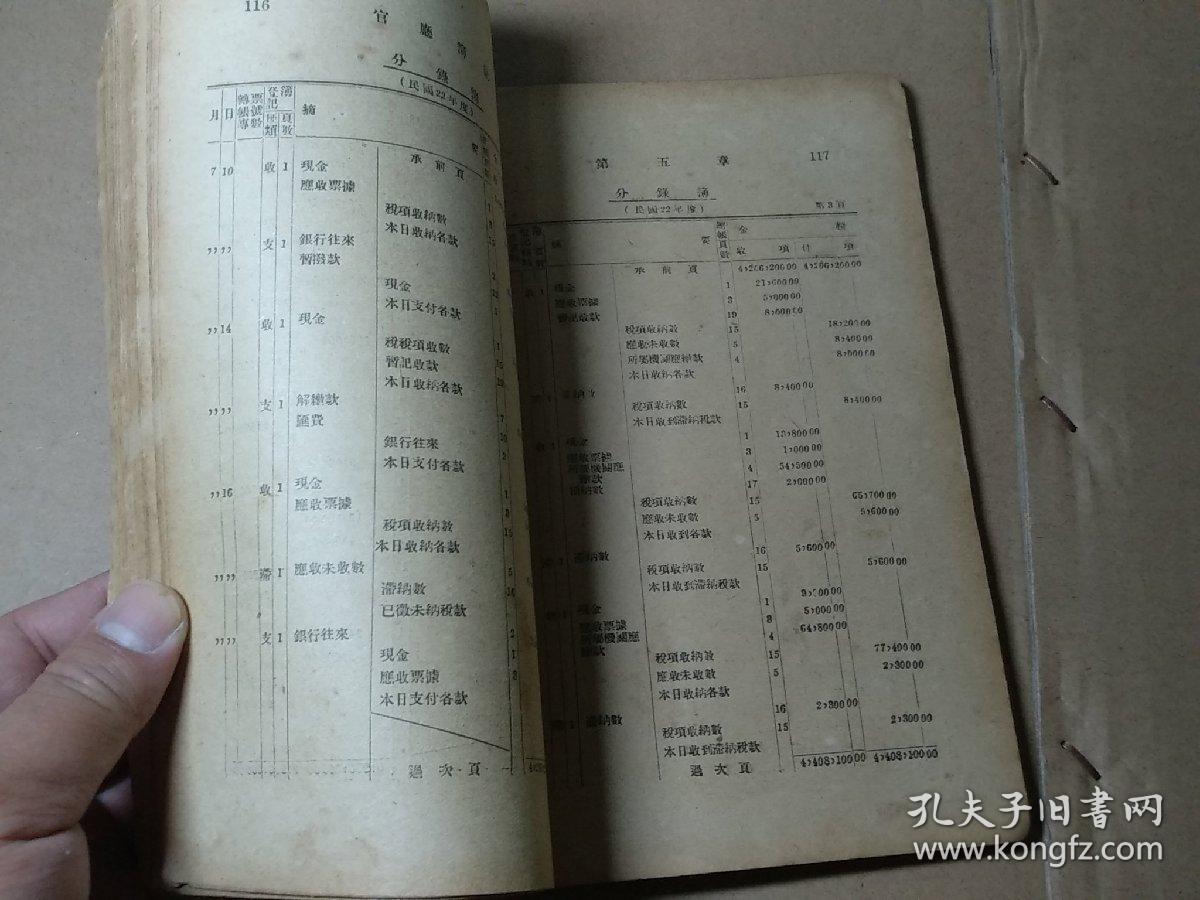 116
官廳簿
分錄簿
(民國22年度)
月 日 轉帳專票號數 登記簿種類 頁數 摘 要
承前頁
7 10 收 1 現金
應收票據
稅項收納數
本日收納各款
,, ,, 支 1 銀行往來
暫撥款
現金
本日支付各款
,, 14 收 1 現金
稅稅項收數
暫記收款
本日收納各款
,, ,, 支 1 解繳款
匯費
銀行往來
本日支付各款
,, 16 收 1 現金
應收票據
稅項收納數
本日收納各款
,, ,, 滯 1 應收未收數
滯納數
已徵未納稅款
,, ,, 支 1 銀行往來 2
現金 1
應收票據 3
本日支付各款
過次頁
第五章 117
分錄簿
(民國22年度) 第3頁
摘 要 總帳頁數 金 額
收項 付項
承前頁 4,206,200 00 4,206,200 00
現金 1 21,600 00
應收票據 3 5,000 00
暫記收款 19 8,000 00
稅項收納數 15 18,200 00
應收未收數 5 8,400 00
所屬機關應繳款 4 8,000 00
本日收納各款
16 8,400 00
稅項收納數 15 8,400 00
本日收到滯納稅款
現金 1 13,800 00
應收票據 3 1,000 00
所屬機關應繳款 4 54,500 00
滯納數 17 2,000 00
稅項收納數 15 65,700 00
應收未收數 5 5,600 00
本日收到各款
滯納數 16 5,600 00
稅項收納數 15 5,600 00
本日收到滯納稅款
現金 1
應收票據 3 5,000 00
所屬機關應繳款 4 64,800 00
稅項收納數 15 77,400 00
應收未收數 5 2,300 00
本日收納各款
滯納數 16 2,300 00
稅項收納數 15 2,300 00
本日收到滯納稅款
過次頁 4,408,100 00 4,408,100 00
孔夫子旧书网
www.kongfz.com